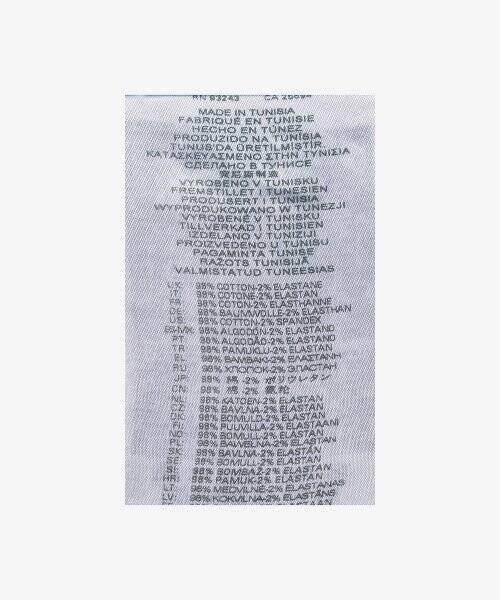 RN 93243 CA
MADE IN TUNISIA
FABRIQUÉ EN TUNISIE
HECHO EN TÚNEZ
PRODUZIDO NA TUNÍSIA
TUNUS'DA ÜRETİLMİŞTİR.
ΚΑΤΑΣΚΕΥΑΣΜΕΝΟ ΣΤΗΝ ΤΥΝΙΣΙΑ
СДЕЛАНО В ТУНИСЕ
突尼斯制造
VYROBENO V TUNISKU
FREMSTILLET I TUNESIEN
PRODUSERT I TUNISIA
WYPRODUKOWANO W TUNEZJI
VYROBENÉ V TUNISKU
TILLVERKAD I TUNISIEN
IZDELANO V TUNIZIJI
PROIZVEDENO U TUNISU
PAGAMINTA TUNISE
RAŽOTS TUNISIJĀ
VALMISTATUD TUNEESIAS
UK: 98% COTTON-2% ELASTANE
IT: 98% COTONE-2% ELASTAN
FR: 98% COTON-2% ELASTHANNE
DE: 98% BAUMWOLLE-2% ELASTHAN
US: 98% COTTON-2% SPANDEX
ES-MX: 98% ALGODÓN-2% ELASTANO
PT: 98% ALGODÃO-2% ELASTANO
TR: 98% PAMUKLU-2% ELASTAN
EL: 98% ΒΑΜΒΑΚΙ-2% ΕΛΑΣΤΑΝΗ
RU: 98% ХЛОПОК-2% ЭЛАСТАН
JP: 98% 綿 -2% ポリウレタン
CN: 98% 棉 -2% 氨纶
NL: 98% KATOEN-2% ELASTAN
CZ: 98% BAVLNA-2% ELASTAN
DK: 98% BOMULD-2% ELASTAN
FI: 98% PUUVILLA-2% ELASTAANI
NO: 98% BOMULL-2% ELASTAN
PL: 98% BAWEŁNA-2% ELASTAN
SK: 98% BAVLNA-2% ELASTÁN
SE: 98% BOMULL-2% ELASTAN
SI: 98% BOMBAŽ-2% ELASTAN
HR: 98% PAMUK-2% ELASTAN
LT: 98% MEDVILNĖ-2% ELASTANAS
LV: 98% KOKVILNA-2% ELASTĀNS